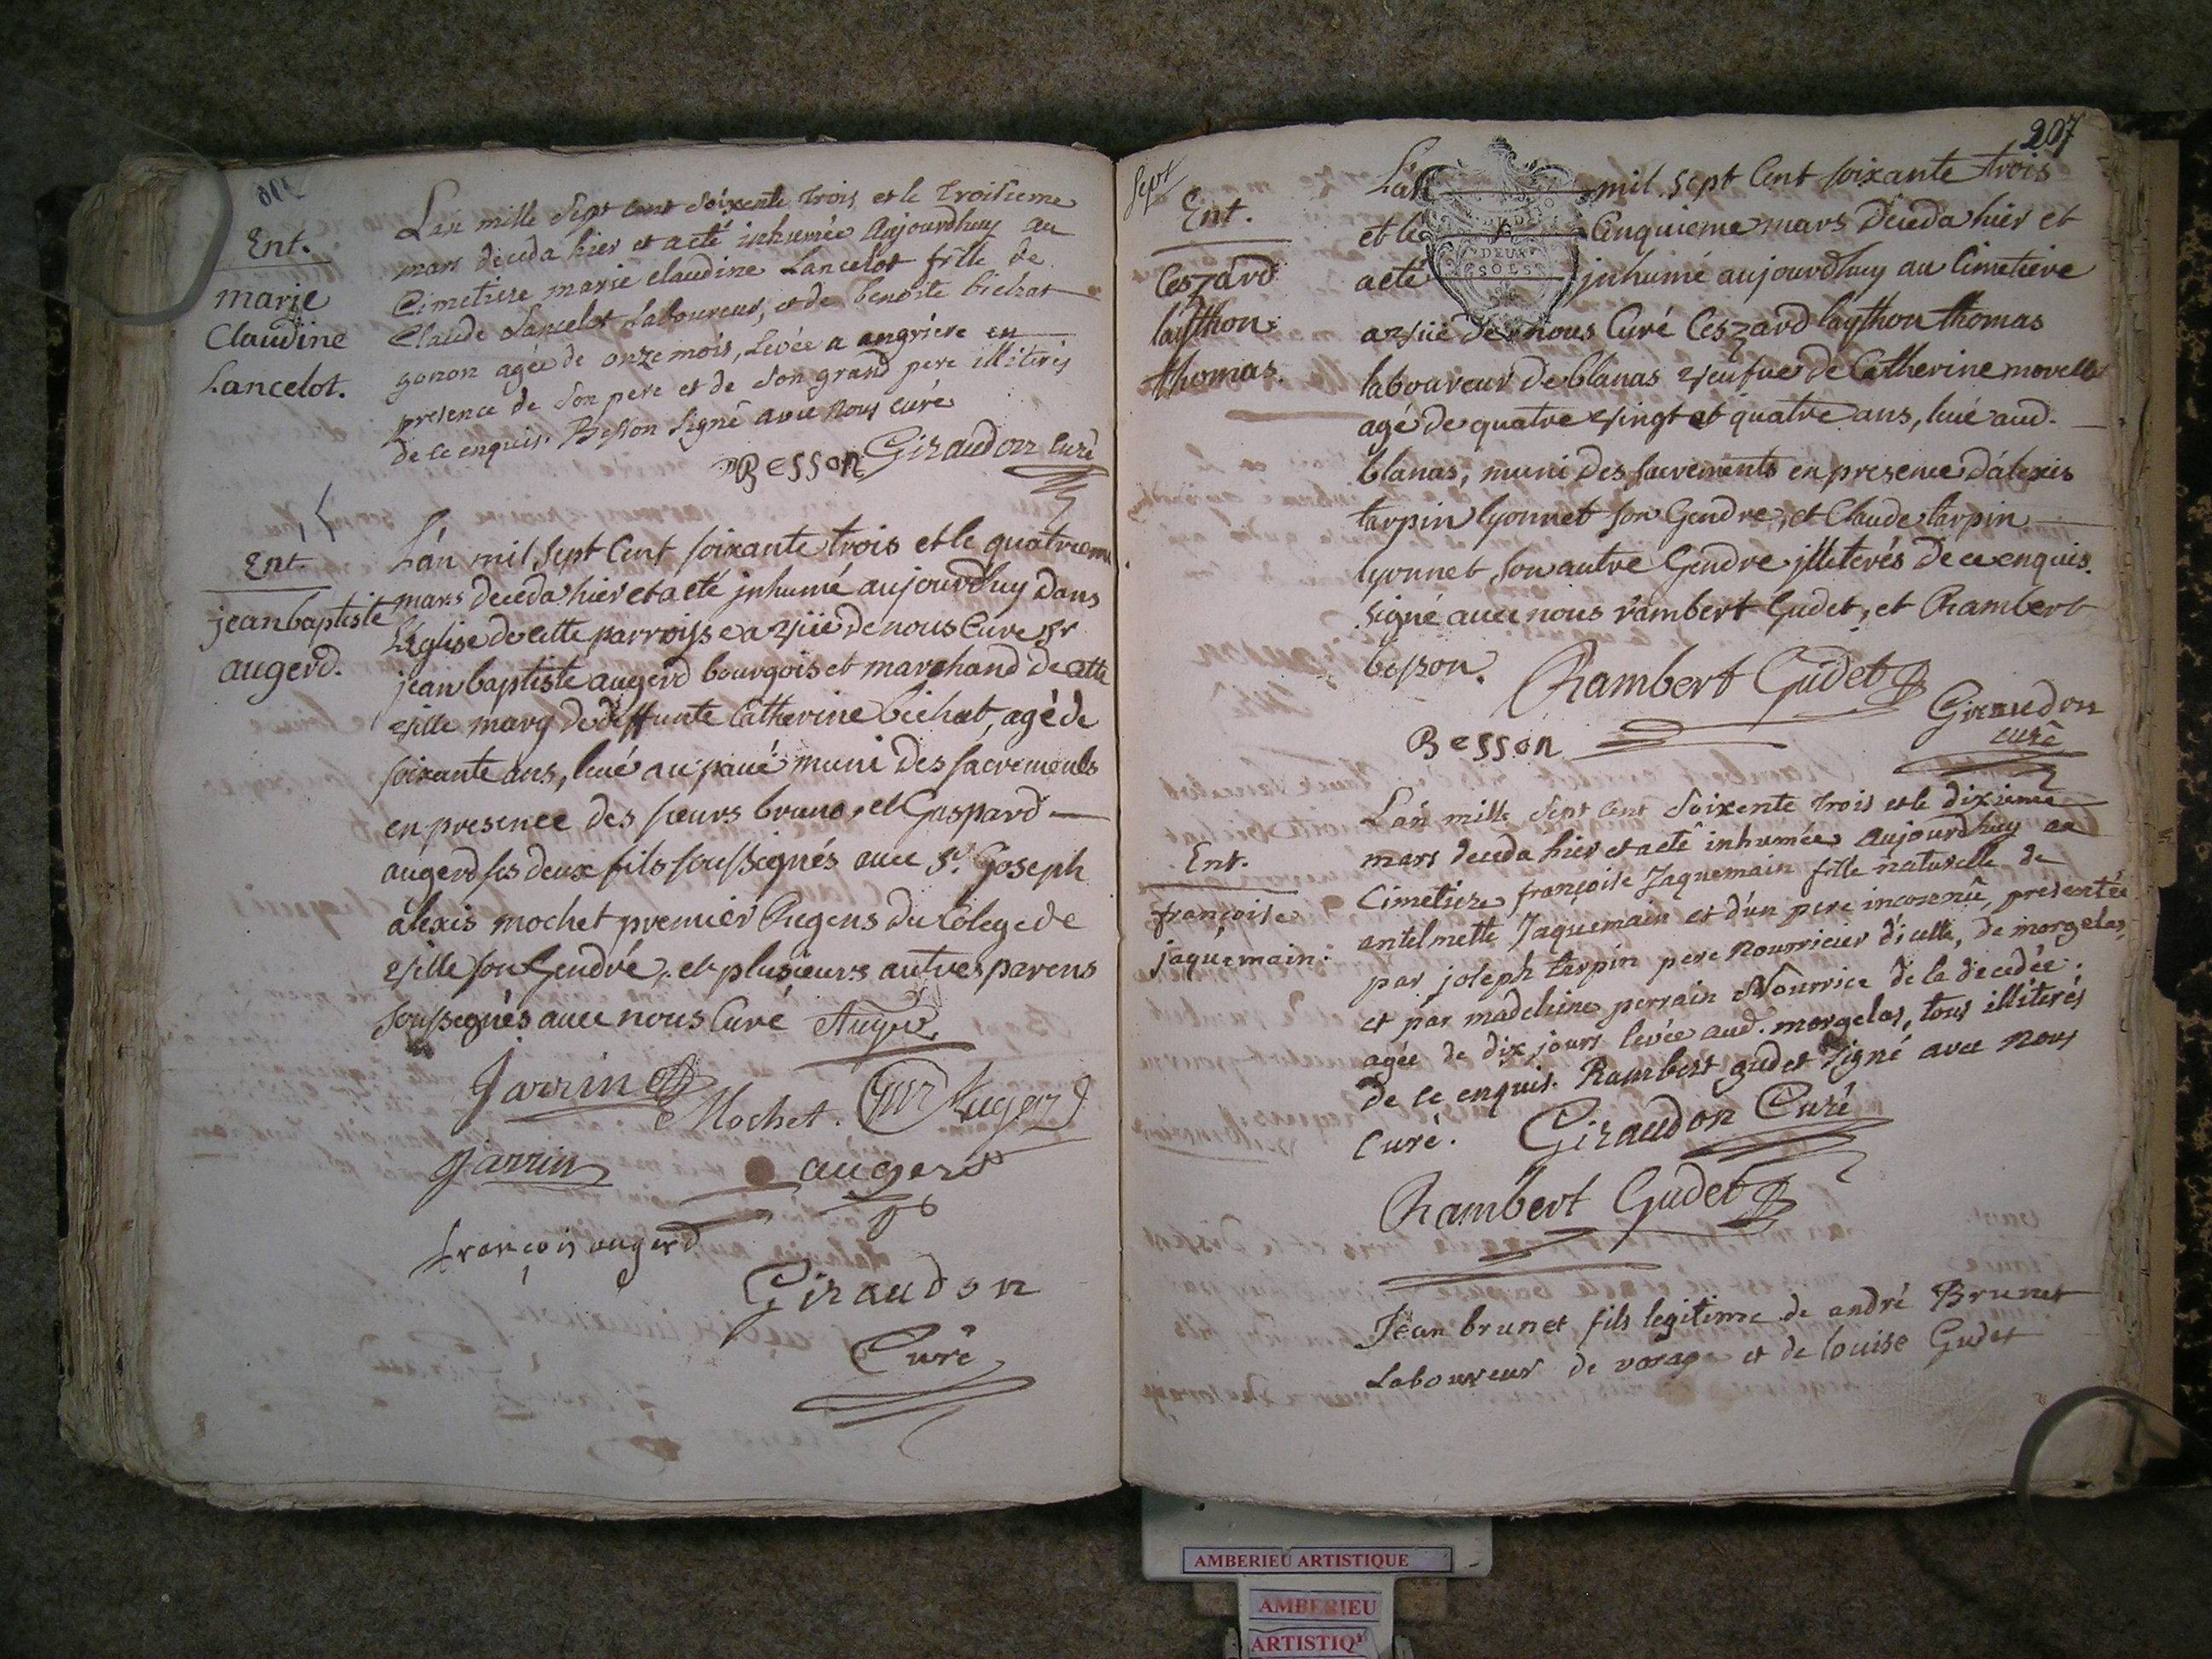 Ent.
marie
Claudine
Lancelot.
L'an mille Sept cent Soixente trois et le troisieme
mars deceda hier et a eté inhumée aujourdhuy au
Cimetiere marie claudine Lancelot fille de
Claude Lancelot Laboureur, et de benoite bichat
gonon agée de onze mois, Levée a angriere en
presence de Son pere et de Son grand pere illiterés
de ce enquis. Besson Signé avec nous curé
Besson Giraudon curé
Ent.
jean baptiste
augerd.
L'an mil sept Cent soixante trois et le quatrieme
mars deceda hier et a eté jnhumé aujourdhuy dans
L'Eglise de cette parroisse a vüe de nous Curé Sr
jean baptiste augerd bourgois et marchand de cette
ville mary de deffunte Catherine bichat, agé de
soixante ans, levé au pavé muni des sacrements
en presence des sieurs bruno, et Gaspard
augerd ses deux fils soussignés avec Sr. Joseph
alexis mochet premier Regens du Colege de
ville son Gendre, et plusieurs autres parens
soussignés avec nous Curé Auger
Jarrin
Mochet. Augerd
Jarrin
augerd
françois augerd
Giraudon
Curé
207
Sept
Ent.
Ceszard
laython
thomas.
L'an mil sept Cent soixante trois
et le Cinquieme mars deceda hier et
a eté jnhumé aujourdhuy au Cimetiere
DEUX
SOLS
a vüe de nous Curé Ceszard laython thomas
laboureur de blanas veufue de Catherine morelle
agé de quatre vingt et quatre ans, levé aud.
blanas, muni des sacrements en presence d'alexis
tarpin lyonnet son Gendre, et Claude tarpin
lyonnet, son autre Gendre jlliterés de ce enquis.
signé avec nous rambert Gudet, et Rambert
besson. Rambert Gudet
Besson
Giraudon
curé
Ent.
françoise
jaquemain.
L'an mille Sept cent Soixente trois et le dixieme
mars deceda hier et a eté inhumée aujourdhuy au
Cimetiere françoise Jaquemain fille naturelle de
antelmette Jaquemain et d'un pere inconnû, presentée
par joseph tarpin pere nourricier d'icelle, de morgelas,
et par madeleine perrain Nourrice de la decedée.
agée de dix jours levée aud. morgelas, tous illiterés
de ce enquis. Rambert gudet signé avec nous
Curé. Giraudon Curé
Rambert Gudet
Jean brunet fils legitime de andré Brunet
Laboureur de vorage et de louise Gudet
AMBERIEU ARTISTIQUE
AMBERIEU
ARTISTIQ